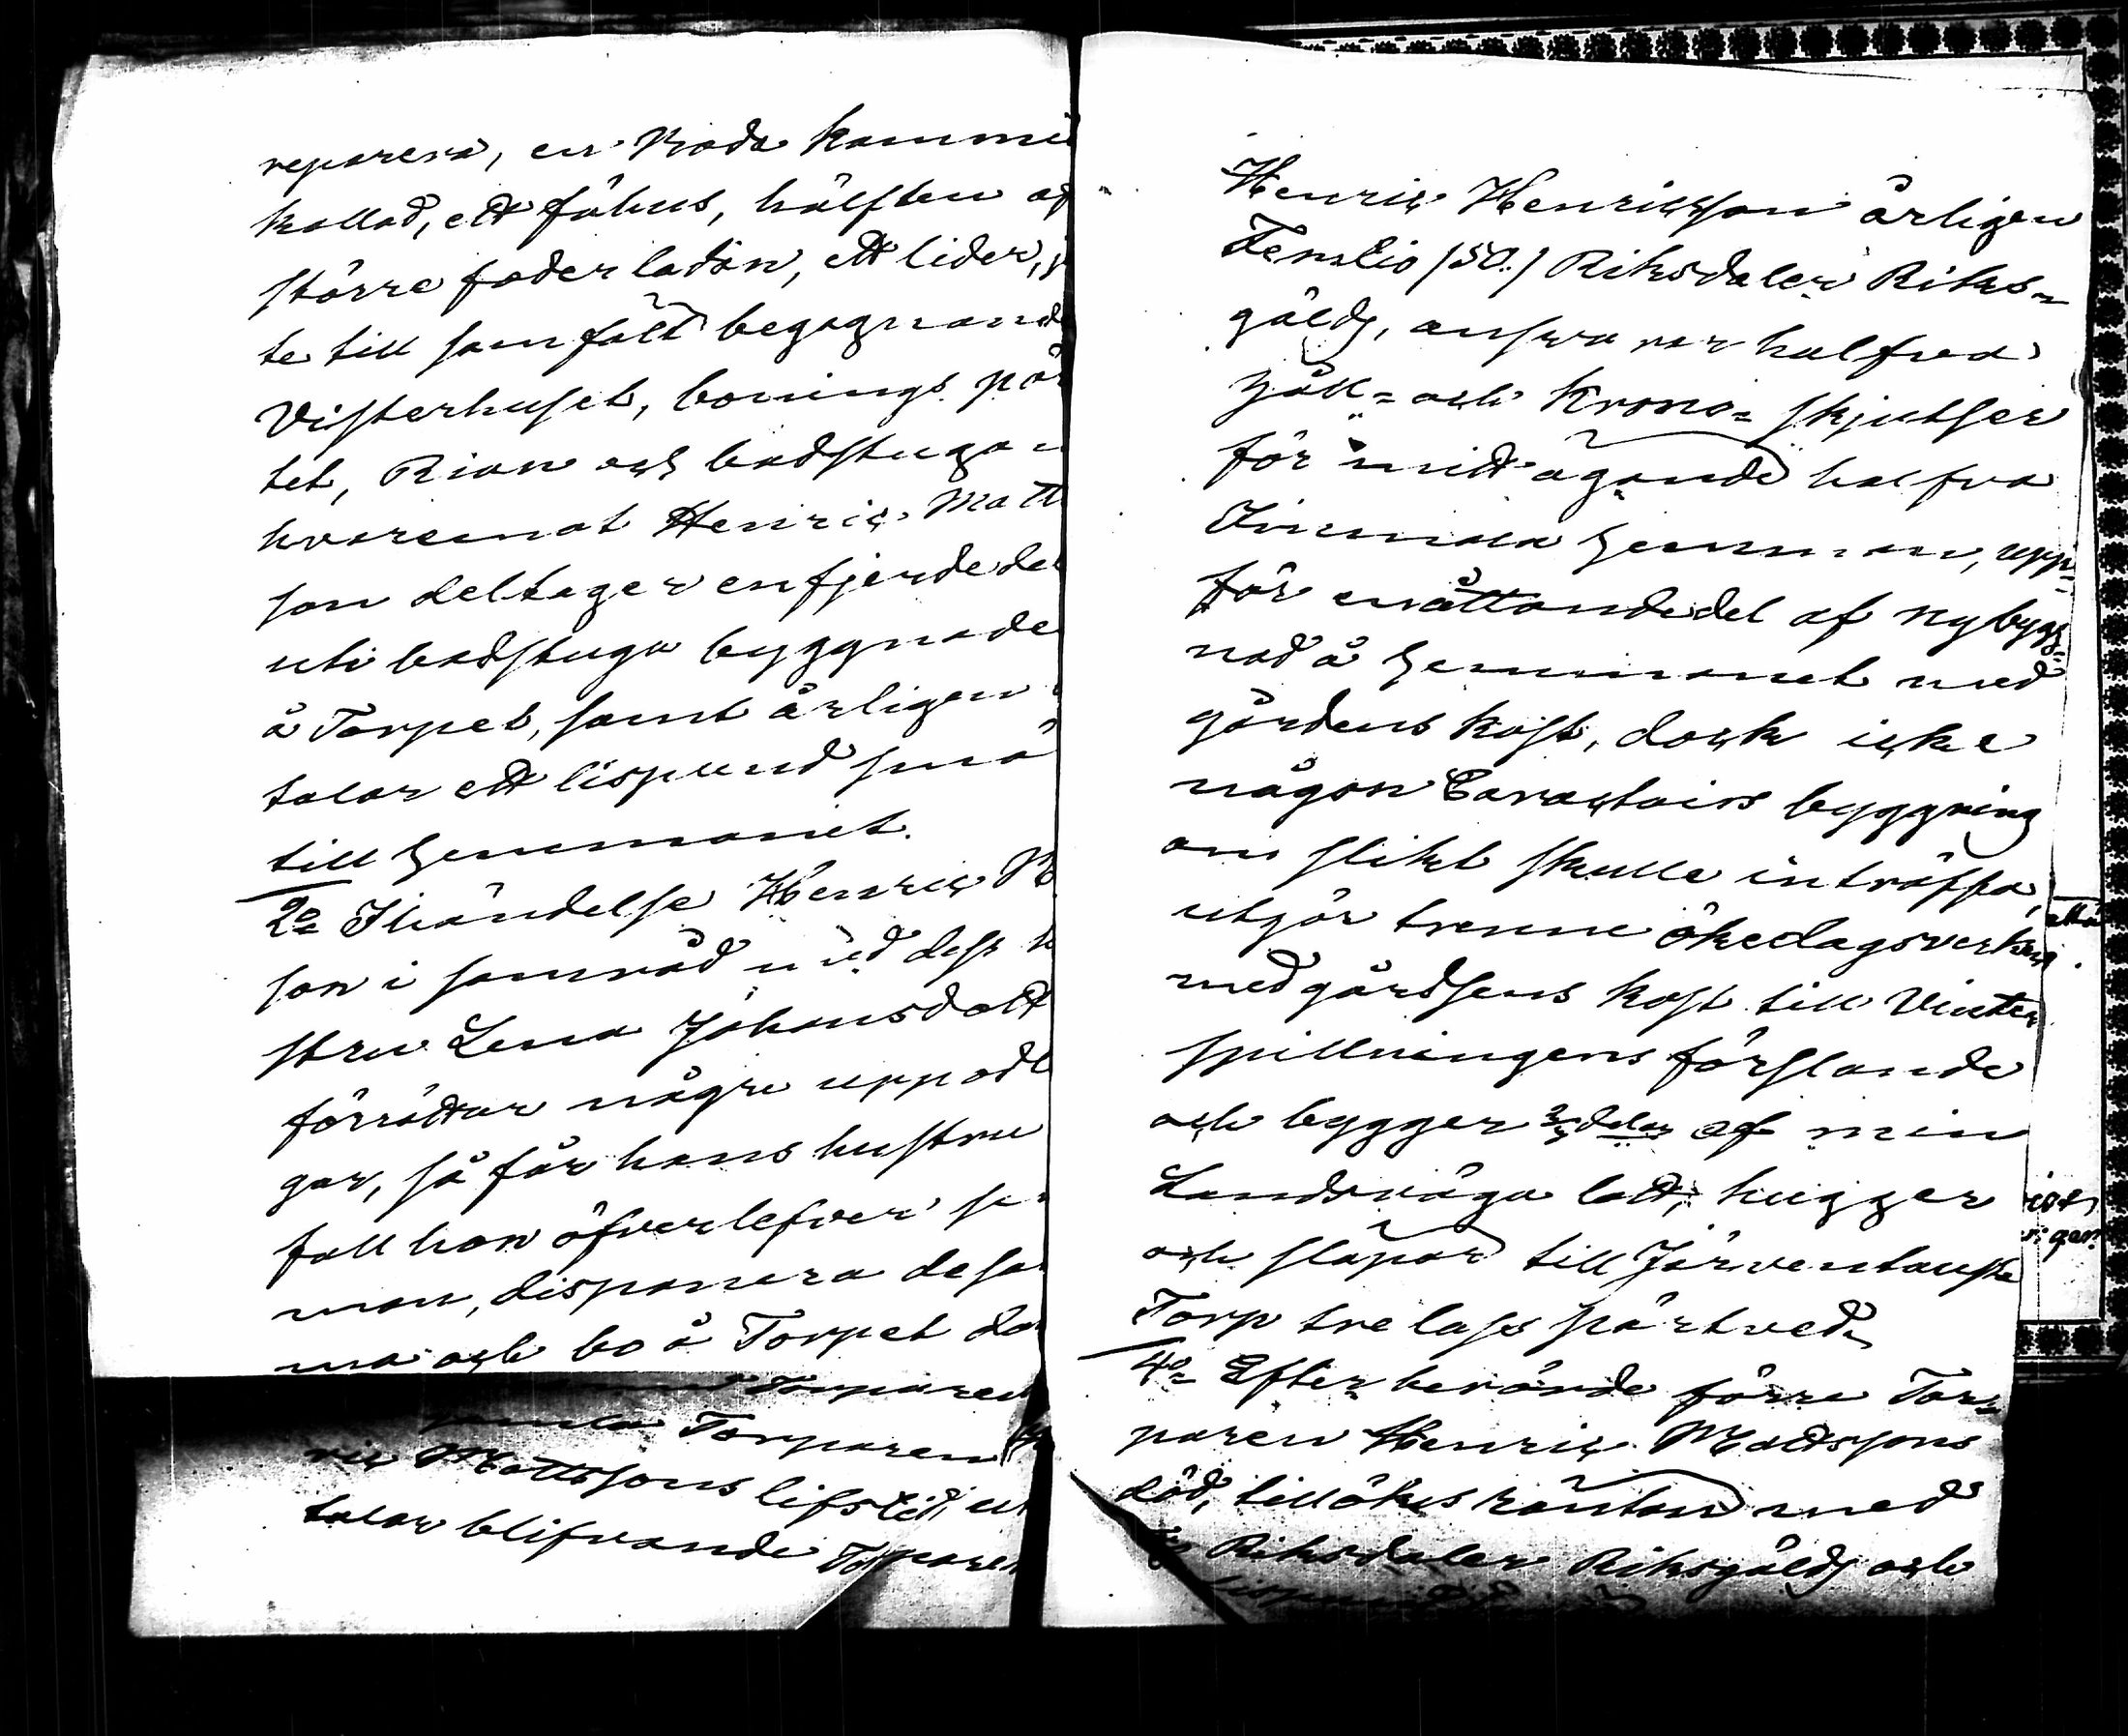 reparera, en Boda kamma
kallad, ett fähus, hälften af
större foder ladan, ett lider,
te till samfält begagnande
Visterhuset, bonings pör
tet, Rian och badstugan
hvaremot Henric Matt
son deltager en fjerdedel
uti badstugu byggnade
å Torpet, samt årligen
talar ett lispund smö
till Hemmanet.
2o Ihändelse Henric M
son i samråd med dess h
stru Lena Johansdott
förrättar några uppodl
gar, så får hans hustru
fall hon öfverlefver si
man, disponera desa
ma och bo å Torpet
Torparen
Torparen
ric Mattssons lifstid, ut
talar blifvande Torparen
Henric Henricsson årligen
Femtio /50./ Riksdaler Riks-
gälds, ansvarar halfva
gäst- och Krono- skjutser
för mitt ägande halfva
Hemman, upp-
för en åttondedel af nybygg-
nad å Hemmanet med
gårdens kost, dock icke
någon Caractairs byggning
om slikt skulle inträffa,
utgör trenne ökedagsverken
med gårdsens kost till Vinter
spillningens förslande
och bygger 2/3 delar af min
Landsväga lott, hugger
och släpar till Järventausta
Torp tre lass pörtved.
4o Efter berörde förre Tor-
paren Henric Mattssons
död, tillökes räntan med
Riksdaler Riksgälds och
lispund